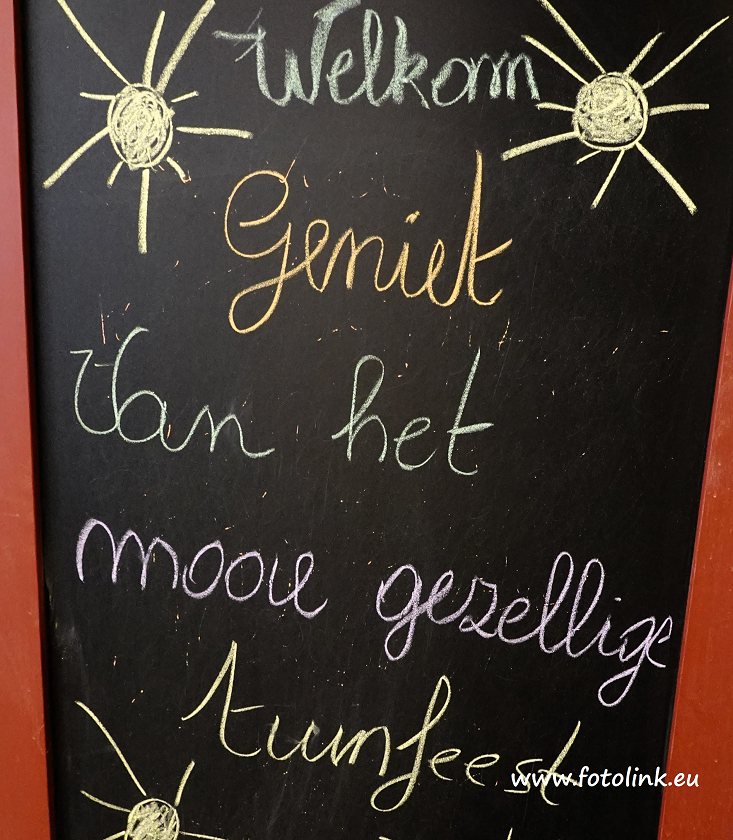 Welkom
Geniet
Van het
mooie gezellige
tuinfeest
www.fotolink.eu